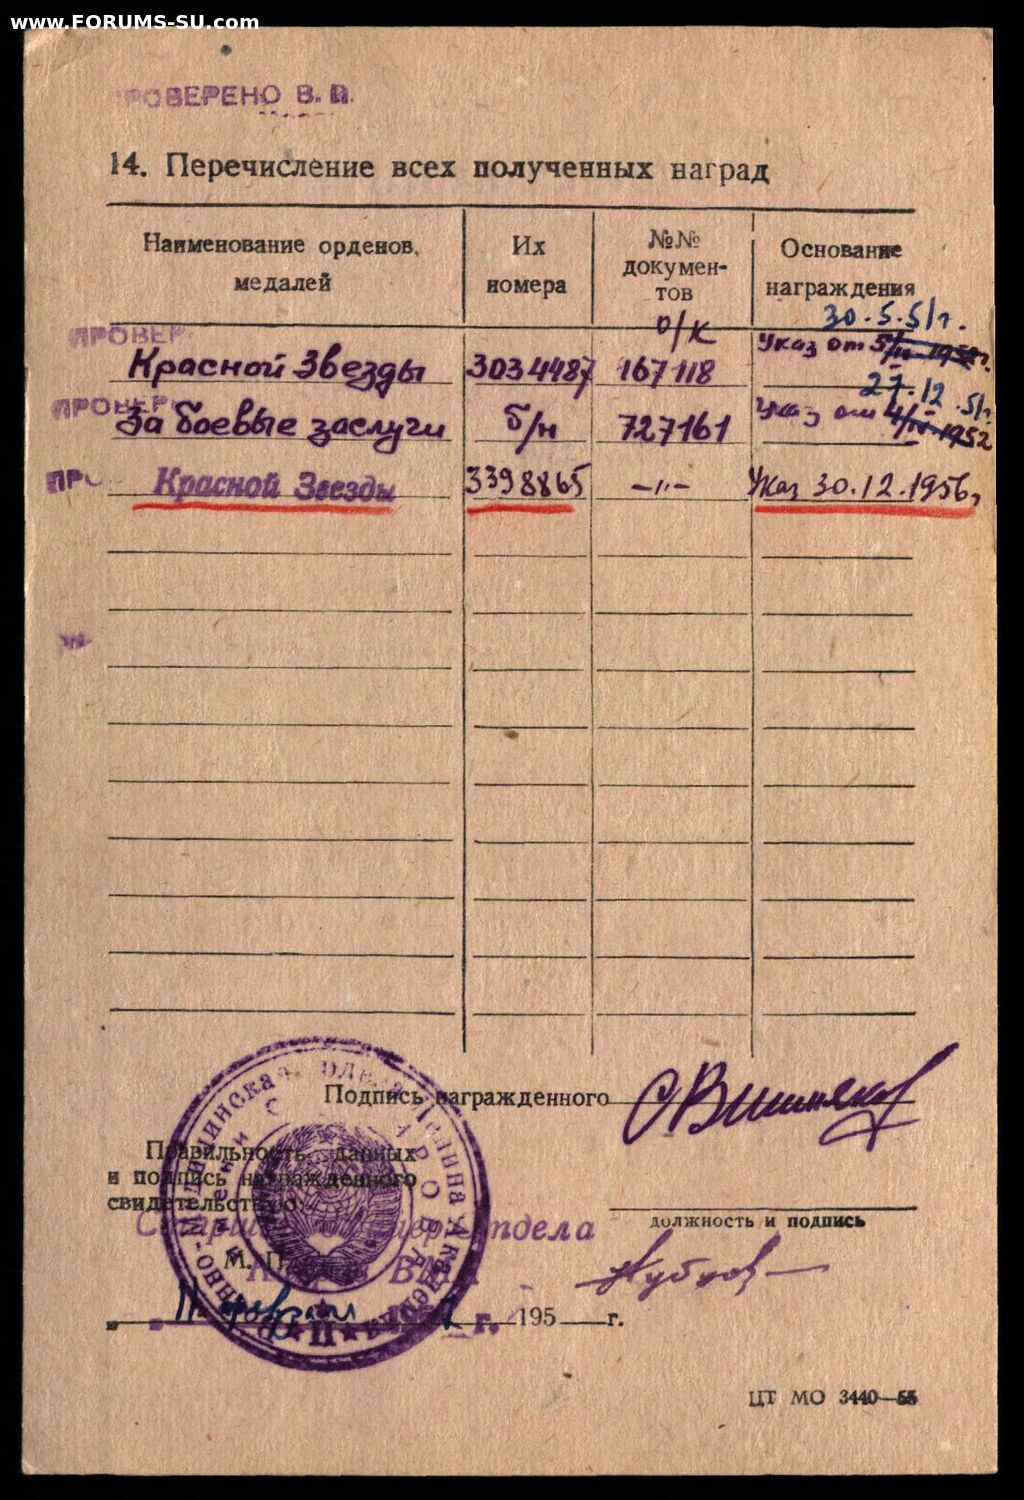 www.FORUMS-SU.com
ПРОВЕРЕНО В. П.
14. Перечисление всех полученных наград
Наименование орденов, медалей
Их номера
№№ документов
Основание награждения
о/к
30.5.51г.
ПРОВЕР
Красной Звезды 3034487 167118 Указ от
27.12.51г.
ПРОВЕР
За боевые заслуги б/н 727161 Указ от 1952
ПРО
Красной Звезды 3398865 —"— Указ 30.12.1956г
Подпись награжденного СВишняков
Правильность данных
и подпись награжденного
свидетельствую
отдела
должность и подпись
М. П.
11 февраля 7 г. 195 г.
ЦТ МО 3440—55